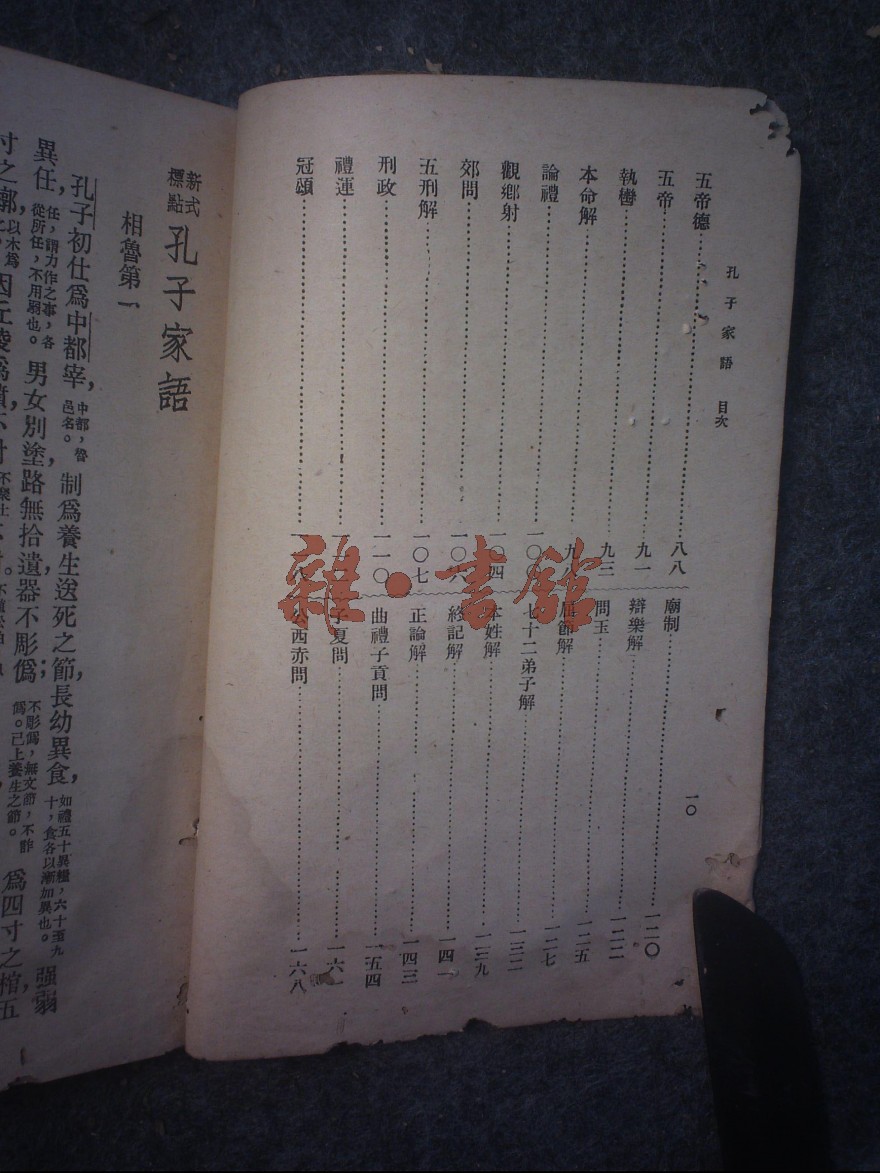 孔子家語 目次
一〇
五帝德 八八
五帝 九一
執轡 九三
本命解 九八
論禮 一〇〇
觀鄉射 一〇四
郊問 一〇六
五刑解 一〇七
刑政 一一〇
禮運
冠頌
廟制 一二〇
辯樂解 一二二
問玉 一二五
屈節解 一二七
七十二弟子解 一三二
本姓解 一三九
終記解 一四一
正論解 一四三
曲禮子貢問 一五四
子夏問 一六一
公西赤問 一六八
雜·書館
新式標點 孔子家語
相魯第一
孔子初仕爲中都宰，中都，魯邑名。制爲養生送死之節，長幼異食，如禮五十異糧，六十至九十，食各以漸加異也。强弱
異任，任，謂力作之事，各從所任，不用弱也。男女別塗，路無拾遺，器不彫僞；不彫僞，無文飾，不詐僞。已上養生之節。爲四寸之棺，五
寸之槨，以木爲